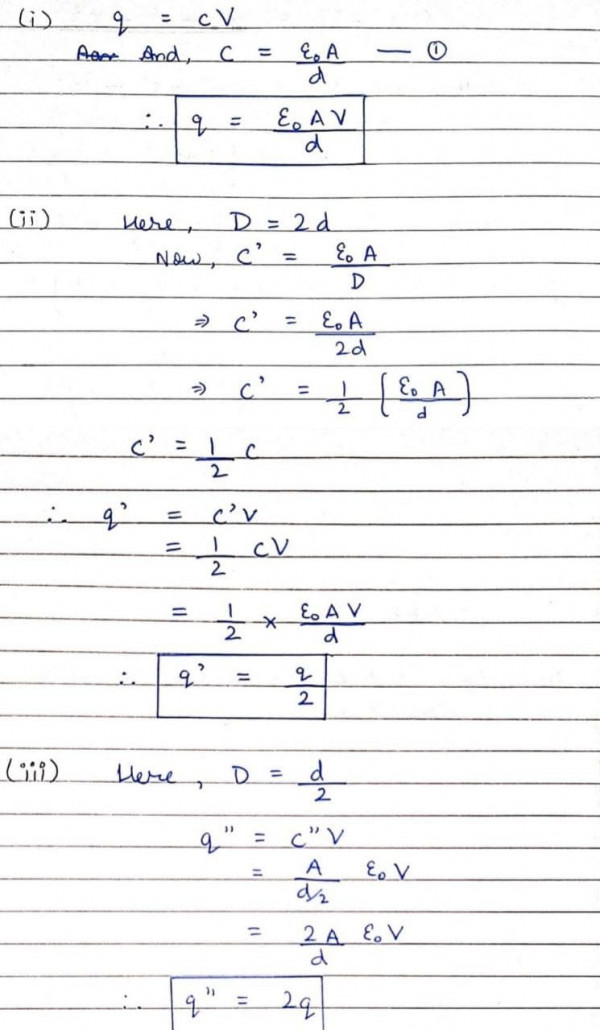 (i) q = cV
And, C = ε₀A/d — ①
∴ q = ε₀AV/d
(ii) Here, D = 2d
Now, C' = ε₀A/D
⇒ C' = ε₀A/2d
⇒ C' = 1/2 [ε₀A/d]
C' = 1/2 C
∴ q' = C'V
= 1/2 CV
= 1/2 × ε₀AV/d
∴ q' = q/2
(iii) Here, D = d/2
q" = C"V
= A/d/2 ε₀V
= 2A/d ε₀V
∴ q" = 2q